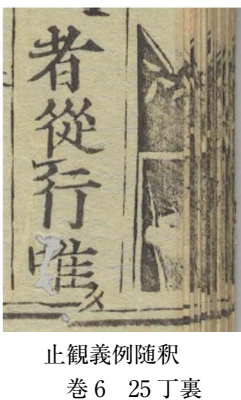 者從行唯
止観義例随釈
巻6 25丁裏